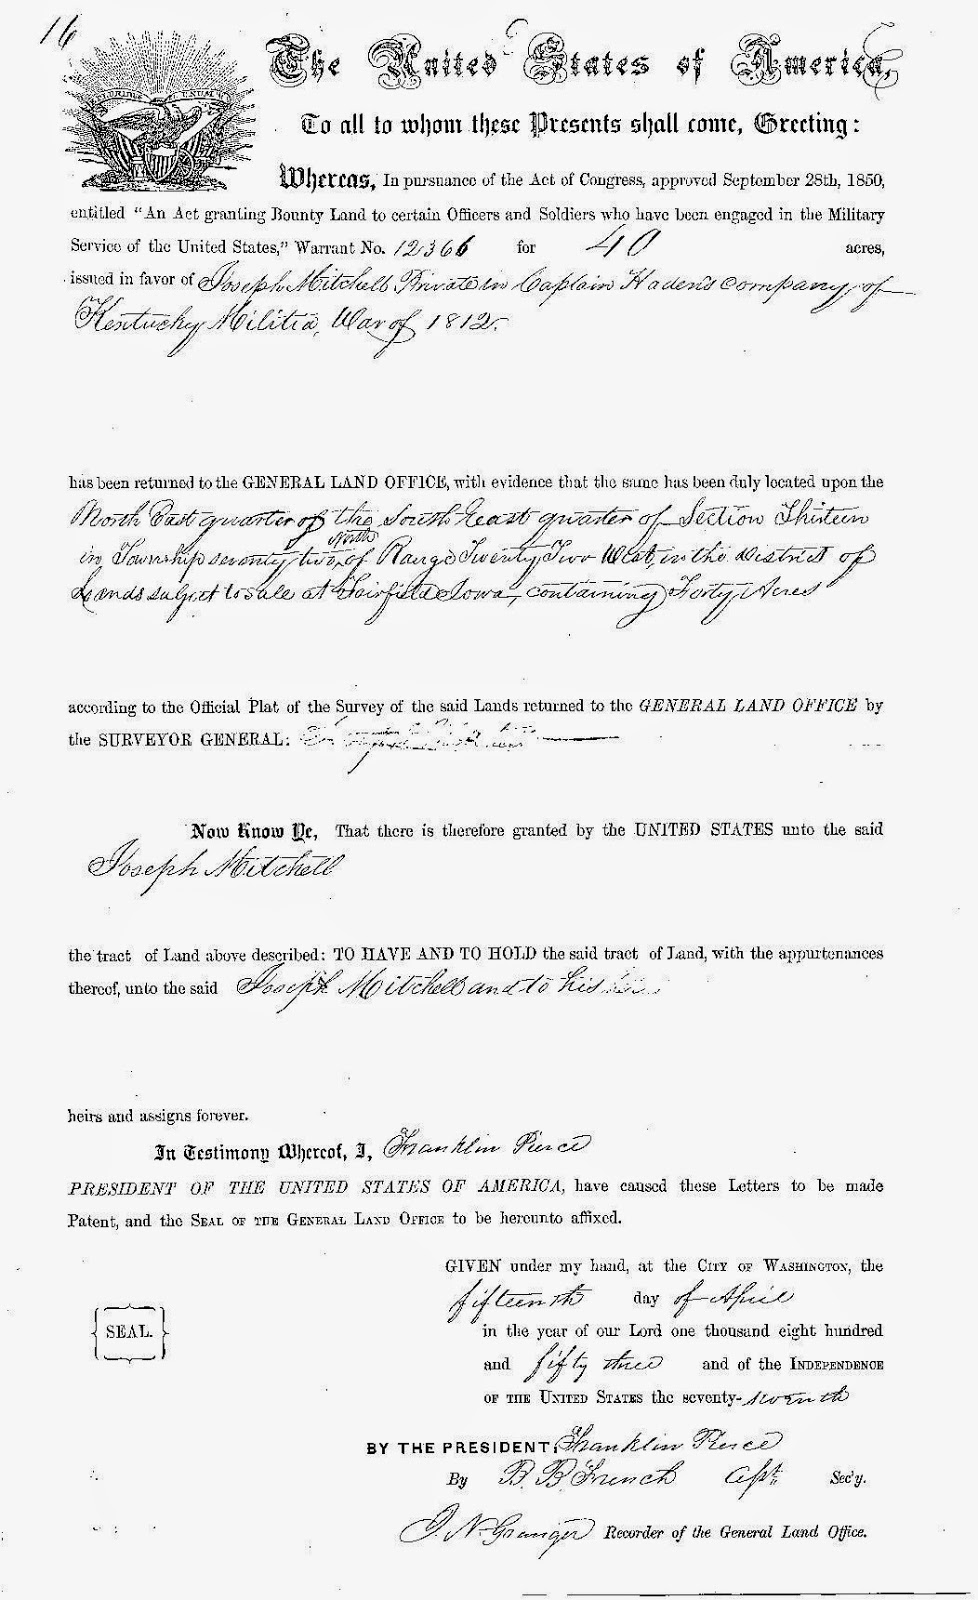 16
The United States of America,
To all to whom these Presents shall come, Greeting:
Whereas, In pursuance of the Act of Congress, approved September 28th, 1850,
entitled "An Act granting Bounty Land to certain Officers and Soldiers who have been engaged in the Military
Service of the United States," Warrant No. 12366 for 40 acres,
issued in favor of Joseph Mitchell Private in Captain Haden's company of
Kentucky Militia, War of 1812.
has been returned to the GENERAL LAND OFFICE, with evidence that the same has been duly located upon the
North East quarter of the South East quarter of Section Thirteen
North
in Township seventy two, of Range Twenty Two West, in the District of
Lands subject to sale at Fairfield Iowa, containing Forty Acres
according to the Official Plat of the Survey of the said Lands returned to the GENERAL LAND OFFICE by
the SURVEYOR GENERAL:
Now Know Ye, That there is therefore granted by the UNITED STATES unto the said
Joseph Mitchell
the tract of Land above described: TO HAVE AND TO HOLD the said tract of Land, with the appurtenances
thereof, unto the said Joseph Mitchell and to his
heirs and assigns forever.
In Testimony Whereof, I, Franklin Pierce
PRESIDENT OF THE UNITED STATES OF AMERICA, have caused these Letters to be made
Patent, and the SEAL OF THE GENERAL LAND OFFICE to be hereunto affixed.
GIVEN under my hand, at the CITY OF WASHINGTON, the
fifteenth day of April
SEAL.
in the year of our Lord one thousand eight hundred
and fifty three and of the INDEPENDENCE
OF THE UNITED STATES the seventy-seventh
BY THE PRESIDENT: Franklin Pierce
By B. B. French Asst. Sec'y.
J. N. Granger Recorder of the General Land Office.